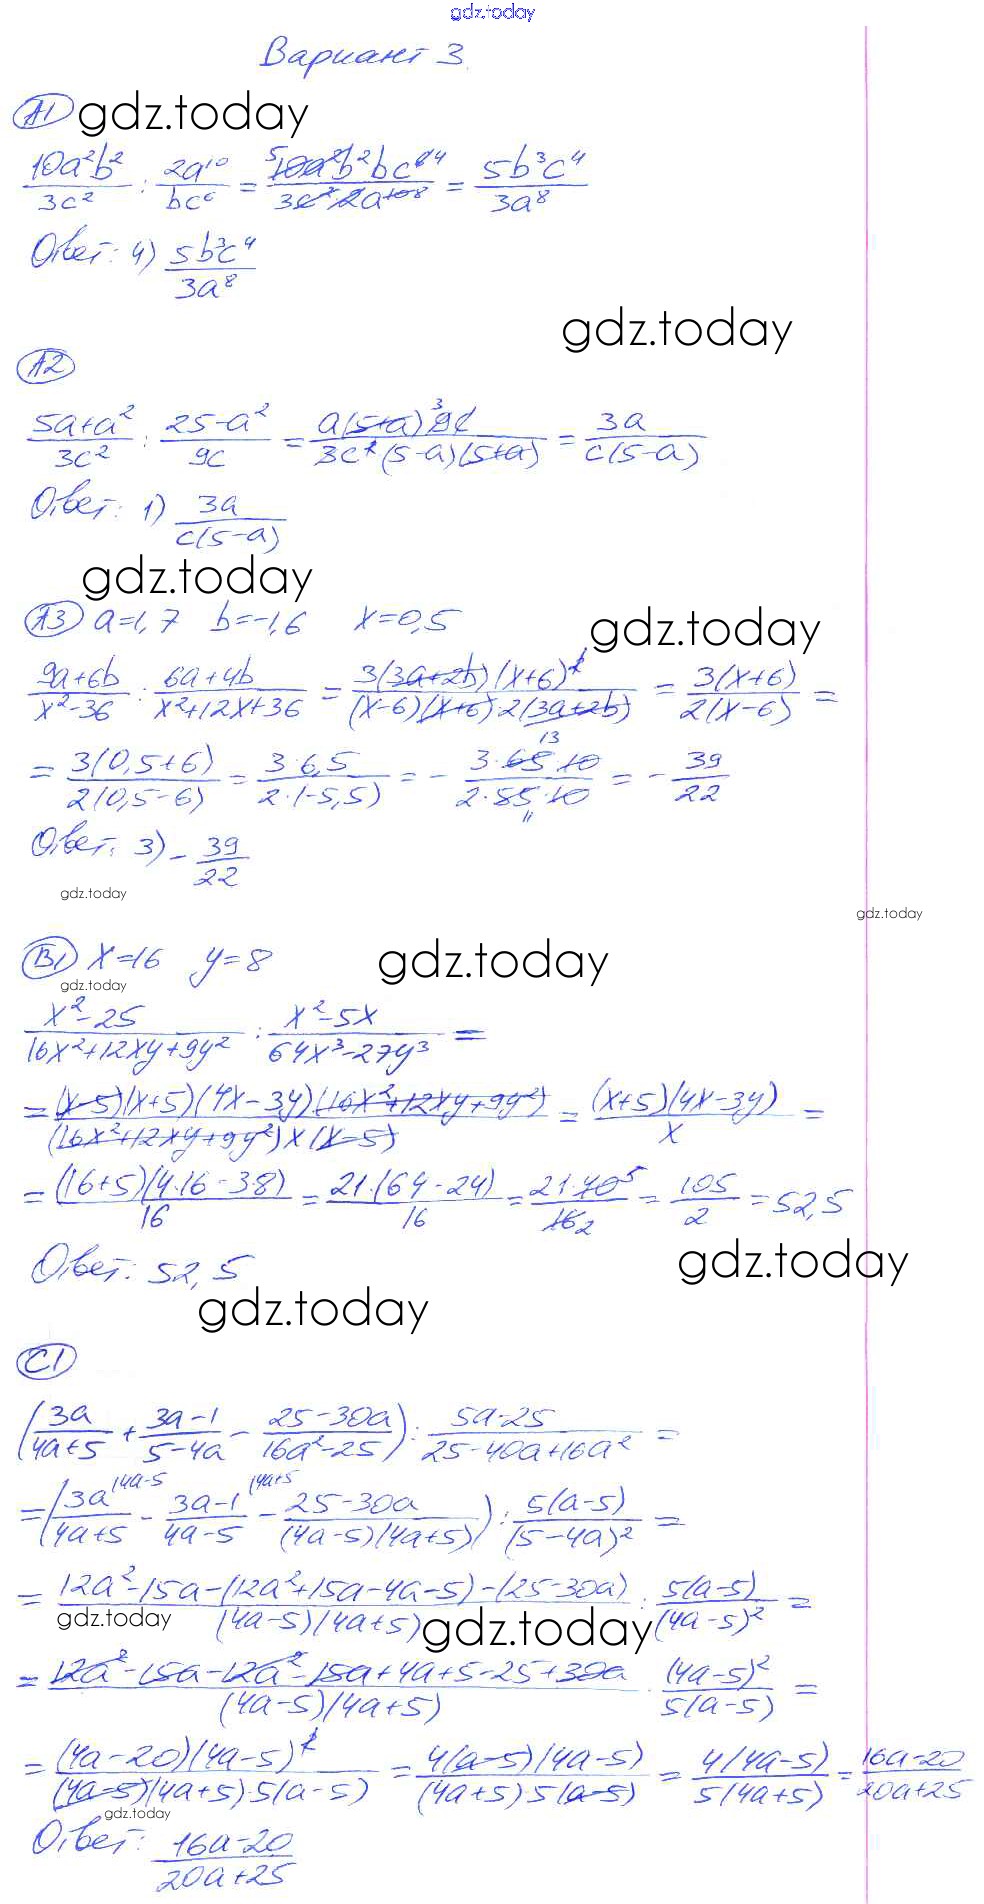 gdz.today
Вариант 3.
А1 gdz.today
10a²b²/3c² : 2a¹⁰/bc⁶ = 10a²b²bc⁶/3c²·2a¹⁰ = 5b³c⁴/3a⁸
Ответ: 4) 5b³c⁴/3a⁸
gdz.today
А2
5a+a²/3c² : 25-a²/9c = a(5+a)9c/3c²(5-a)(5+a) = 3a/c(5-a)
Ответ: 1) 3a/c(5-a)
gdz.today
А3 a=1,7 b=-1,6 x=0,5
gdz.today
9a+6b/x²-36 : 6a+4b/x²+12x+36 = 3(3a+2b)(x+6)²/(x-6)(x+6)·2(3a+2b) = 3(x+6)/2(x-6) =
= 3(0,5+6)/2(0,5-6) = 3·6,5/2·(-5,5) = - 3·65·10/2·55·10 = - 39/22
Ответ: 3) - 39/22
gdz.today
gdz.today
В1 x=16 y=8
gdz.today
gdz.today
x²-25/16x²+12xy+9y² : x²-5x/64x³-27y³ =
= (x-5)(x+5)(4x-3y)(16x²+12xy+9y²)/(16x²+12xy+9y²)x(x-5) = (x+5)(4x-3y)/x =
= (16+5)(4·16-3·8)/16 = 21·(64-24)/16 = 21·40/16 = 105/2 = 52,5
Ответ: 52,5
gdz.today
gdz.today
С1
(3a/4a+5 + 3a-1/5-4a - 25-30a/16a²-25) : 5a-25/25-40a+16a² =
= (3a/4a+5 - 3a-1/4a-5 - 25-30a/(4a-5)(4a+5)) : 5(a-5)/(5-4a)² =
= 12a²-15a-(12a²+15a-4a-5)-(25-30a)/(4a-5)(4a+5) : 5(a-5)/(4a-5)² =
gdz.today
gdz.today
= 12a²-15a-12a²-15a+4a+5-25+30a/(4a-5)(4a+5) · (4a-5)²/5(a-5) =
= (4a-20)(4a-5)²/(4a-5)(4a+5)·5(a-5) = 4(a-5)(4a-5)/(4a+5)·5(a-5) = 4(4a-5)/5(4a+5) = 16a-20/20a+25
gdz.today
Ответ: 16a-20/20a+25